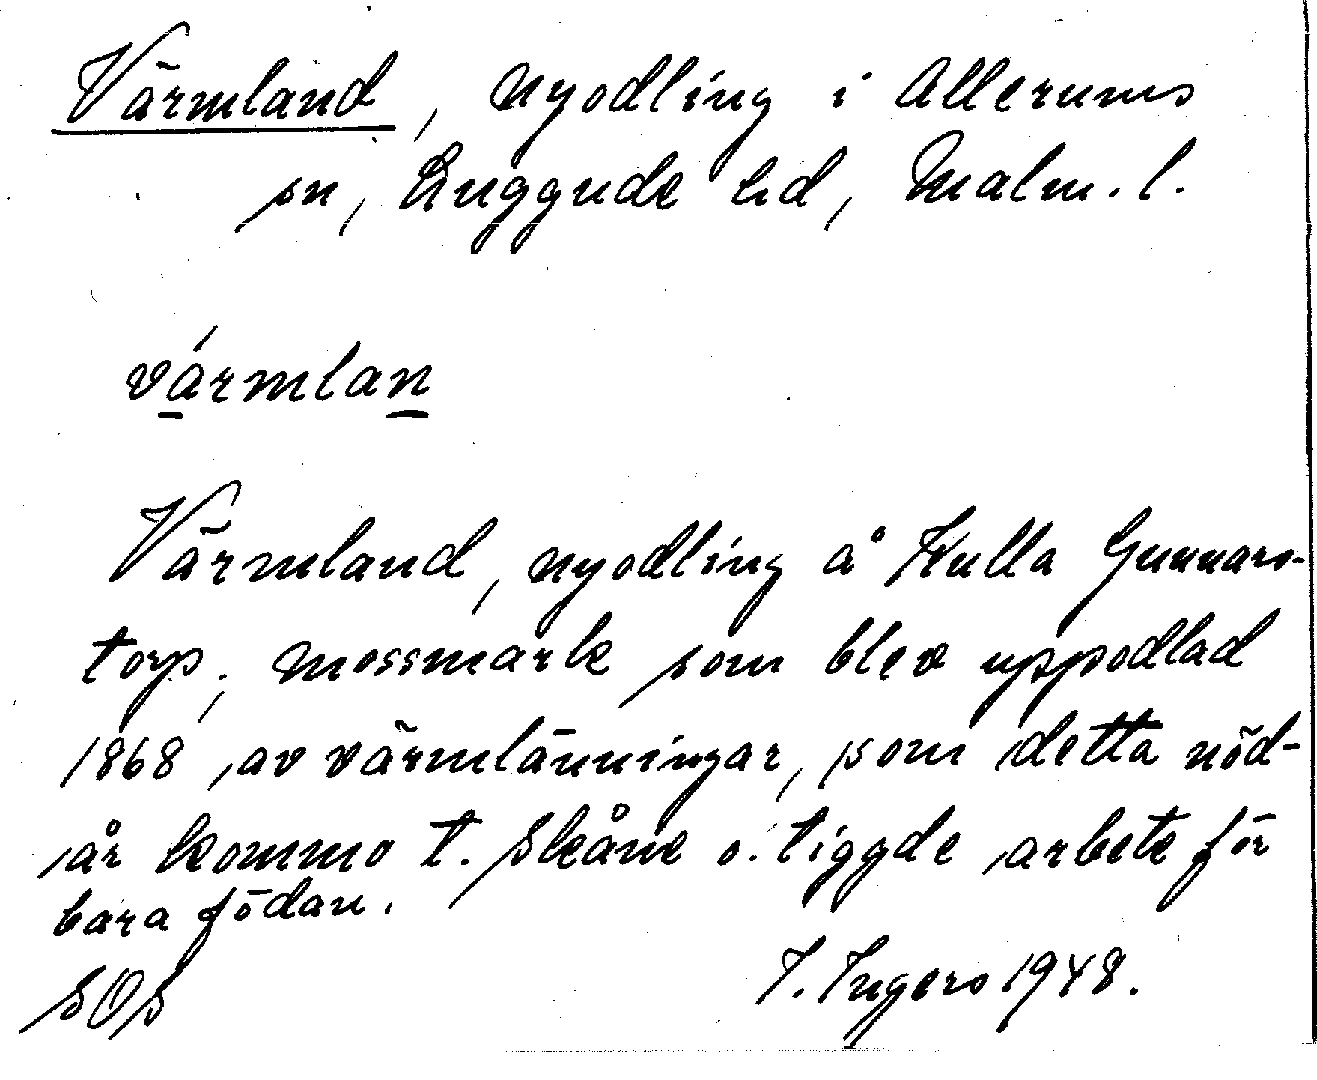 Värmland, nyodling i Allerums
sn, Luggude hd, Malm. l.
värmlan
Värmland, nyodling å Kulla Gunnars-
torp, mossmark som blev uppodlad
1868, av värmlänningar, som detta nöd-
år kommo t. Skåne o. tiggde arbete för
bara födan.
SOS
I. Ingers 1948.